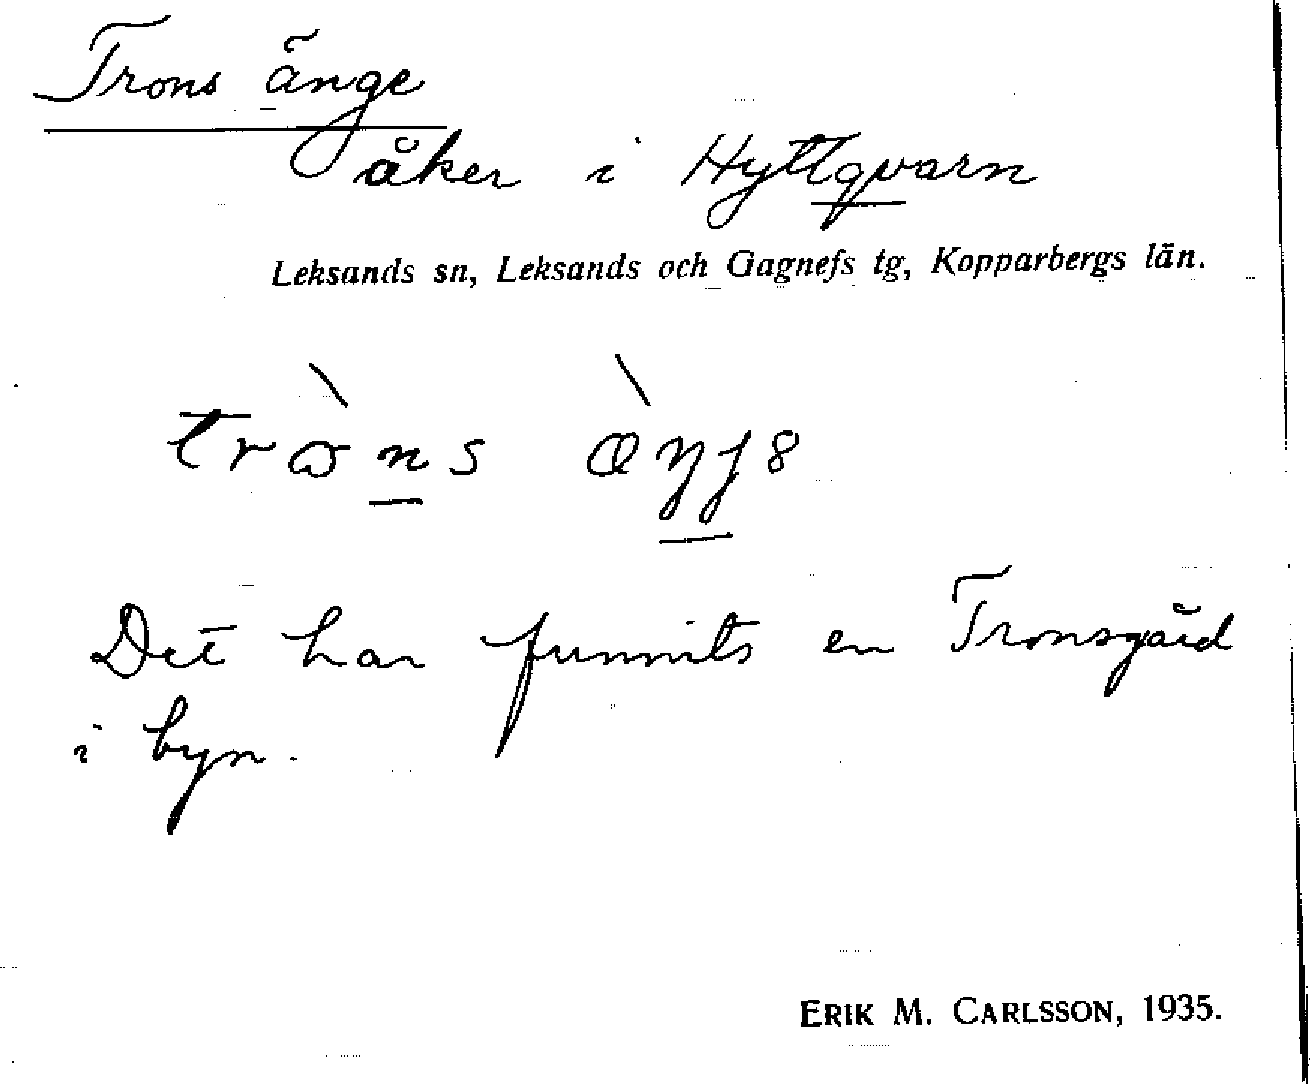 Trons änge
åker i Hyttqvarn
Leksands sn, Leksands och Gagnefs tg, Kopparbergs län.
Det har funnits en Tronsgård
i byn.
ERIK M. CARLSSON, 1935.